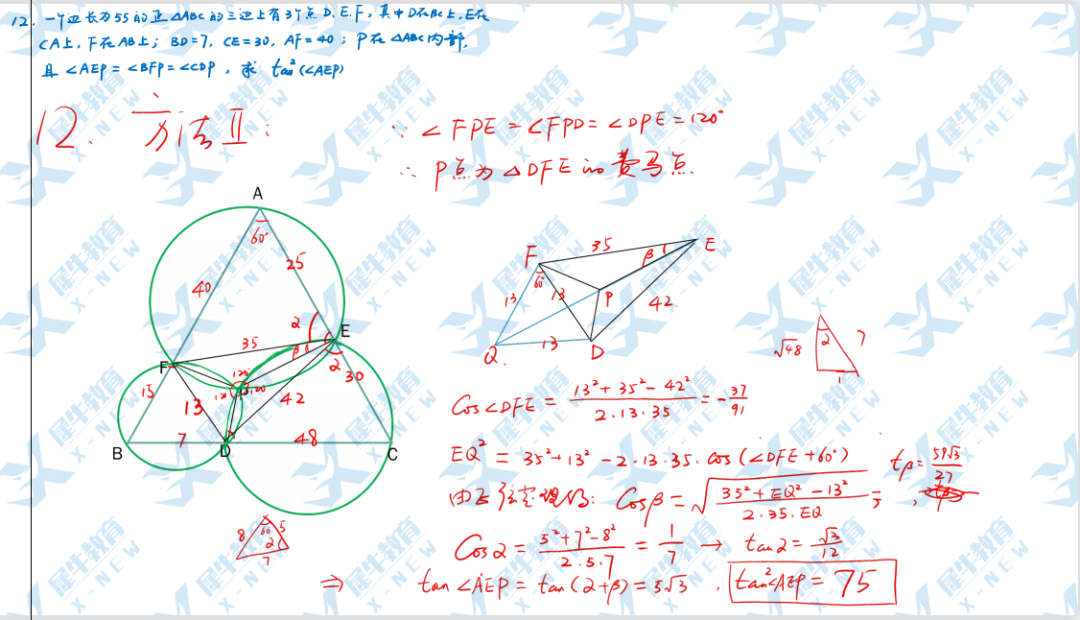 12. 一个边长为55的正△ABC的三边上有3个点D、E、F,其中D在BC上,E在
CA上,F在AB上;BD=7,CE=30,AF=40;P在△ABC内部,
且∠AEP=∠BFP=∠CDP,求tan²(∠AEP)
12. 方法Ⅱ:
∵ ∠FPE=∠FPD=∠DPE=120°
∴ P点为△DFE的费马点.
A
60°
25
40
2
E
35
β
F
2
30
15
120
13
42
7
48
B
D
C
F
35
E
β
60°
13
13
P
42
Q
13
D
√48
2
7
1
Cos∠DFE = \frac{13²+35²-42²}{2·13·35} = -\frac{37}{91}
EQ² = 35²+13²-2·13·35·cos(∠DFE+60°)
tβ=\frac{59√3}{37}
Cosβ=√\frac{35²+EQ²-13²}{2·35·EQ}=
8
60
5
2
7
Cos2=\frac{5²+7²-8²}{2·5·7}=\frac{1}{7} → tan2=\frac{√3}{12}
⇒ tan∠AEP = tan(2+β)=5√3 . tan²∠AEP = 75
犀牛教育
X-NEW